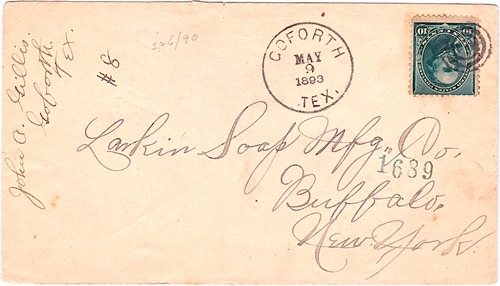 John A. Gillis.
Goforth.
Tex.
#8
126/90
GOFORTH
MAY
9
1893
TEX.
10 10
Larkin Soap Mfg. Co.
1689
Buffalo.
New York.